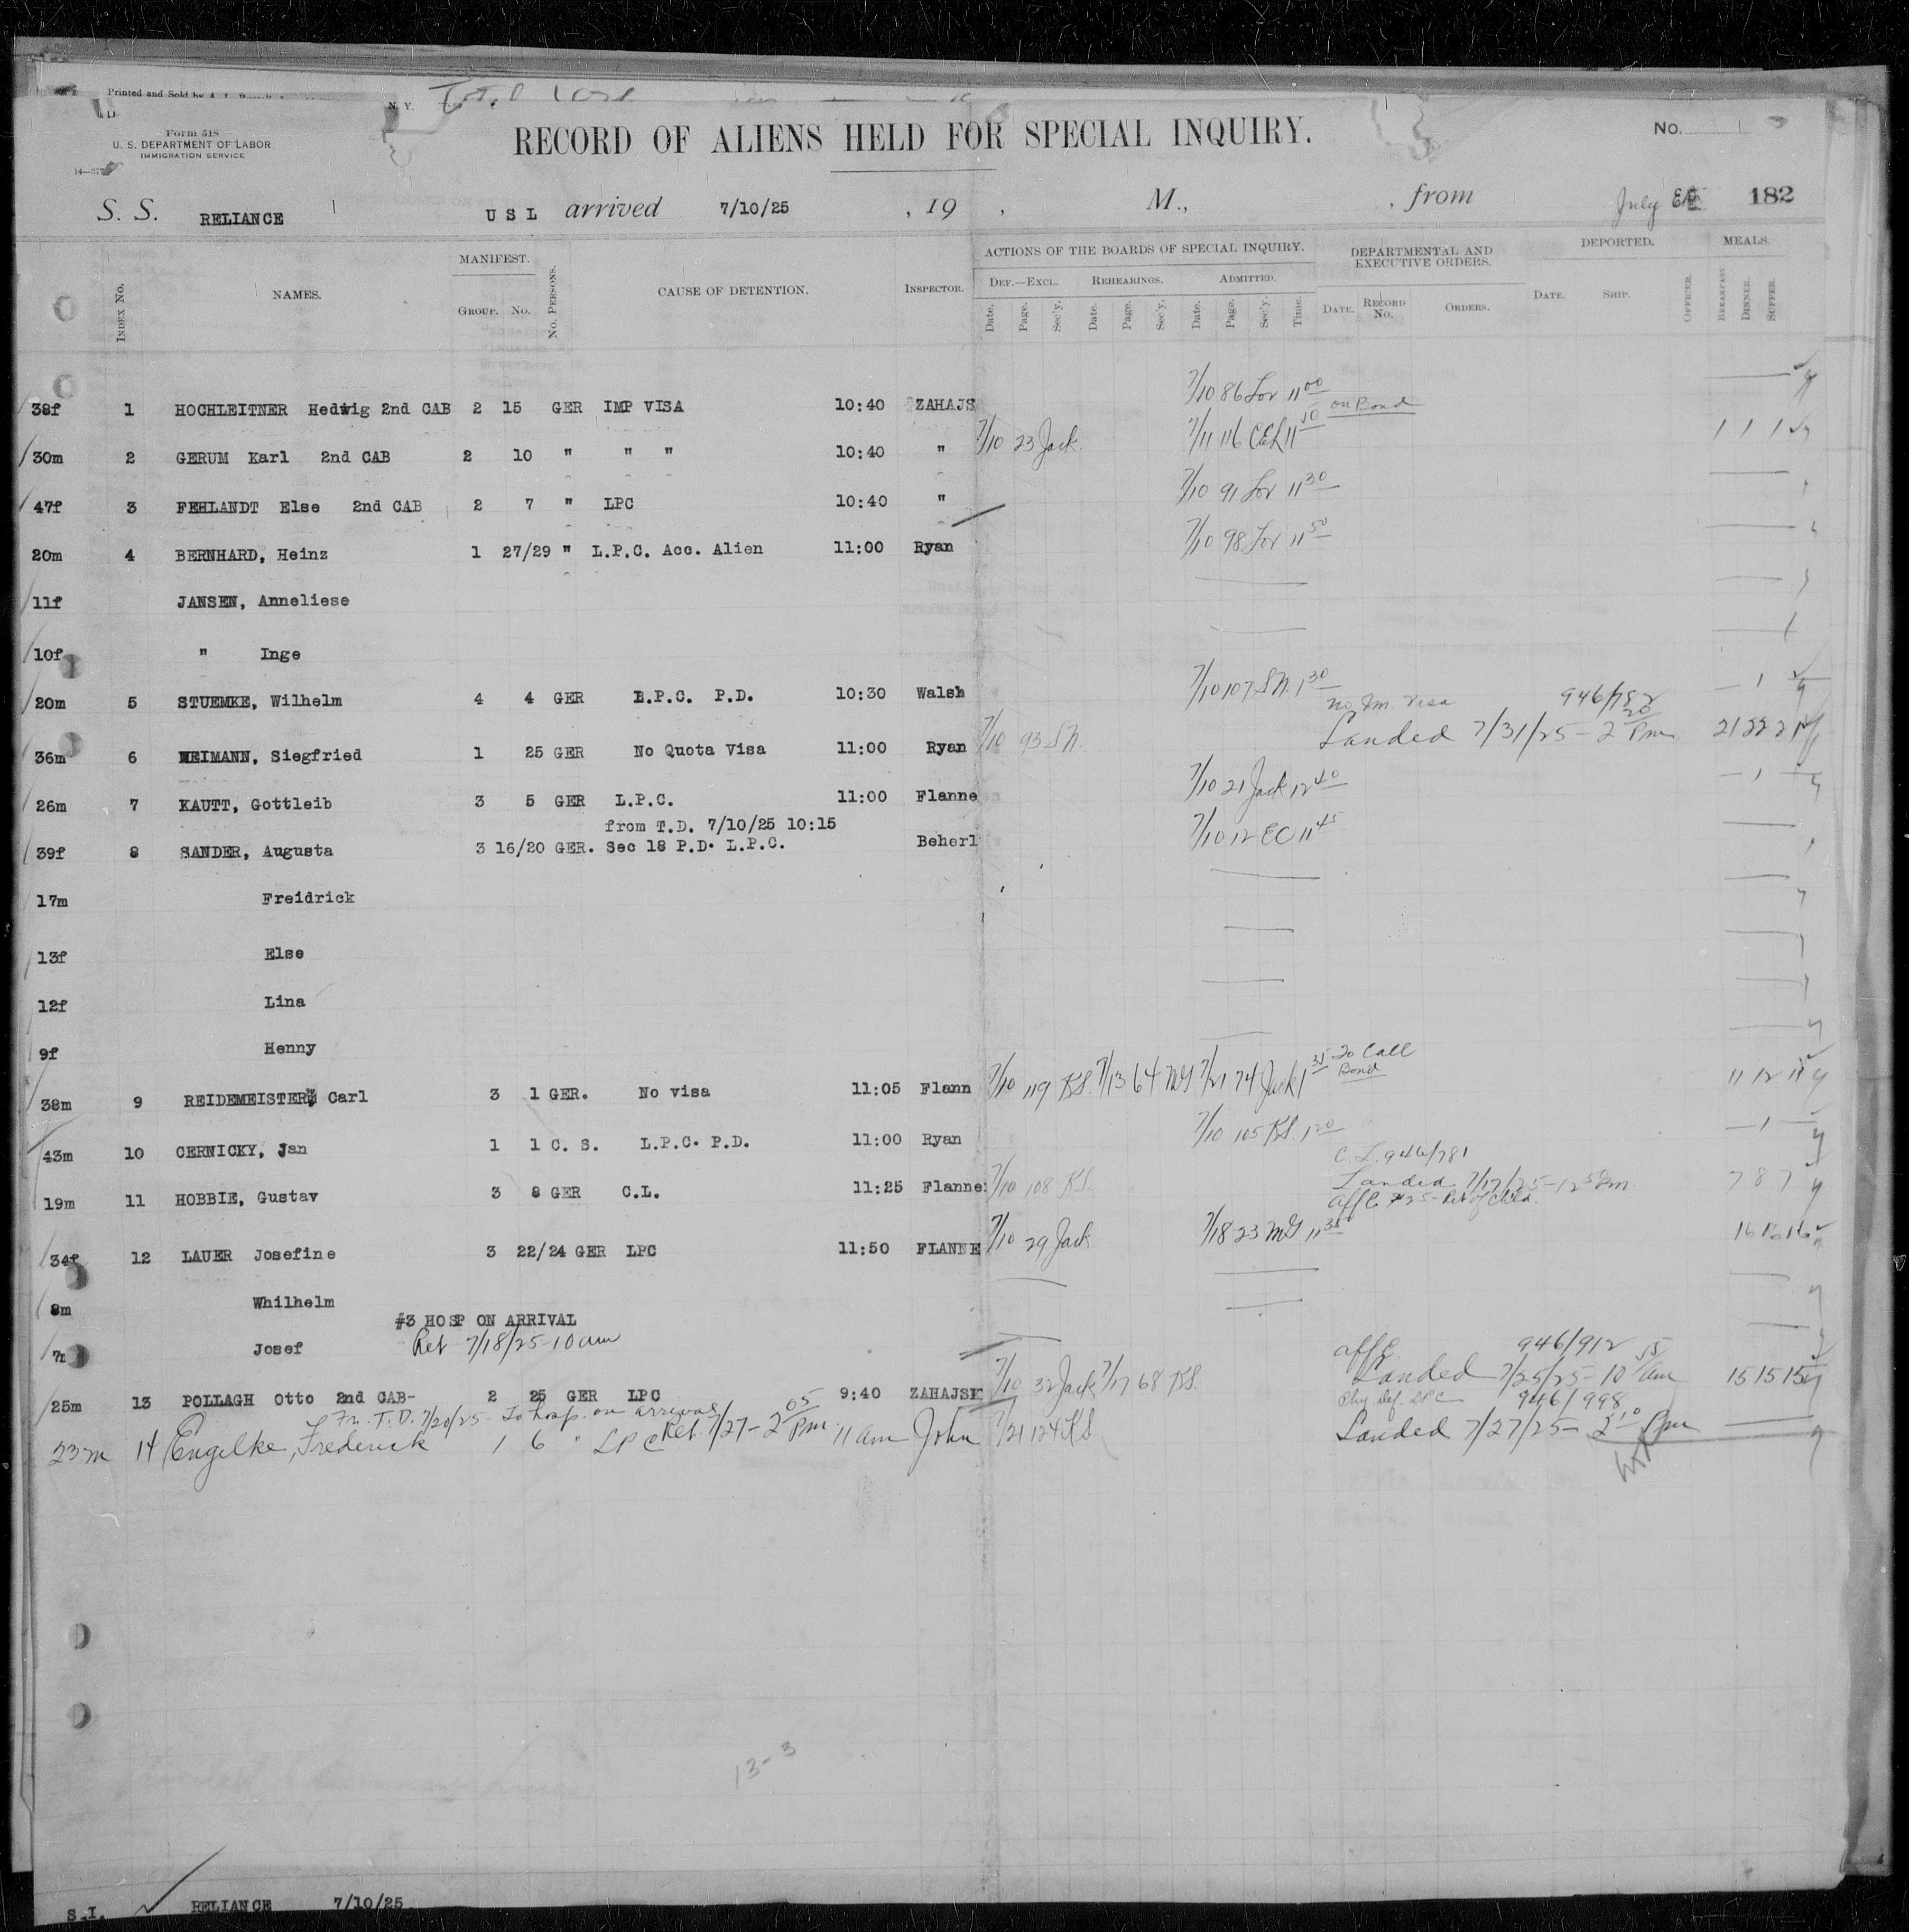 Printed and Sold by
N. Y.
Form 518
U. S. DEPARTMENT OF LABOR
IMMIGRATION SERVICE
RECORD OF ALIENS HELD FOR SPECIAL INQUIRY.
No.
S. S. RELIANCE U S L arrived 7/10/25 , 19 , M., , from July 182
INDEX No. NAMES. MANIFEST. GROUP. No. No. PERSONS. CAUSE OF DETENTION. INSPECTOR. ACTIONS OF THE BOARDS OF SPECIAL INQUIRY. DEPARTMENTAL AND EXECUTIVE ORDERS. DEPORTED. MEALS.
DEF.—EXCL. REHEARINGS. ADMITTED.
Date. Page. Sec'y. Date. Page. Sec'y. Date. Page. Sec'y. Time. DATE. RECORD No. ORDERS. DATE. SHIP. OFFICER. BREAKFAST DINNER SUPPER.
38f 1 HOCHLEITNER Hedwig 2nd CAB 2 15 GER IMP VISA 10:40 ZAHAJS 7/10 86 Lov 11 00
on Bond
30m 2 GERUM Karl 2nd CAB 2 10 " " " 10:40 " 7/10 23 Jack. 7/11 116 CEL 11 50 1 1 1
47f 3 FEHLANDT Else 2nd CAB 2 7 " LPC 10:40 " 7/10 91 Lov 11 30
20m 4 BERNHARD, Heinz 1 27/29 " L.P.C. Acc. Alien 11:00 Ryan 7/10 98 Lov 11 50
11f JANSEN, Anneliese
10f " Inge
20m 5 STUEMKE, Wilhelm 4 4 GER L.P.C. P.D. 10:30 Walsh 7/10 107 S.N. 1 30 1
no Im. visa 946/782
36m 6 WEIMANN, Siegfried 1 25 GER No Quota Visa 11:00 Ryan 7/10 93 S.N. Landed 7/31/25 - 2 20 Pm 21 22 21
26m 7 KAUTT, Gottleib 3 5 GER L.P.C. 11:00 Flanne 7/10 21 Jack 12 40 1
from T.D. 7/10/25 10:15
39f 8 SANDER, Augusta 3 16/20 GER. Sec 18 P.D. L.P.C. Beherl 7/10 12 EC 11 45
17m Freidrick
13f Else
12f Lina
9f Henny
38m 9 REIDEMEISTER, Carl 3 1 GER. No visa 11:05 Flann 7/10 119 KS. 7/13 64 McG 7/21 74 Jack 1 35 To Call Bond 11 12 11
43m 10 CERNICKY, Jan 1 1 C. S. L.P.C. P.D. 11:00 Ryan 7/10 105 KS 1 20 1
C.L. 946/781
19m 11 HOBBIE, Gustav 3 8 GER C.L. 11:25 Flanne 7/10 108 KS. Landed 7/17/25 - Pm 7 8 7
34f 12 LAUER Josefine 3 22/24 GER LPC 11:50 FLANNE 7/10 29 Jack 7/18 23 McG 11 35 16 16 16
8m Whilhelm
#3 HOSP ON ARRIVAL
7m Josef Ret 7/18/25 - 10 am
aff C. 946/912
25m 13 POLLAGH Otto 2nd CAB- 2 25 GER LPC 9:40 ZAHAJSK 7/10 32 Jack 7/17 68 KS. Landed 7/25/25 - 10 55 am 15 15 15
Fm. T.D. 7/20/25 - To hosp. on arrival Phy. def. LPC 946/998
23m 14 Engelke, Frederick 1 6 " LPC Ret. 7/27 - 2 05 Pm 11 am John 7/21 124 KS Landed 7/27/25 - 2 10 Pm
13-3
S.I. RELIANCE 7/10/25